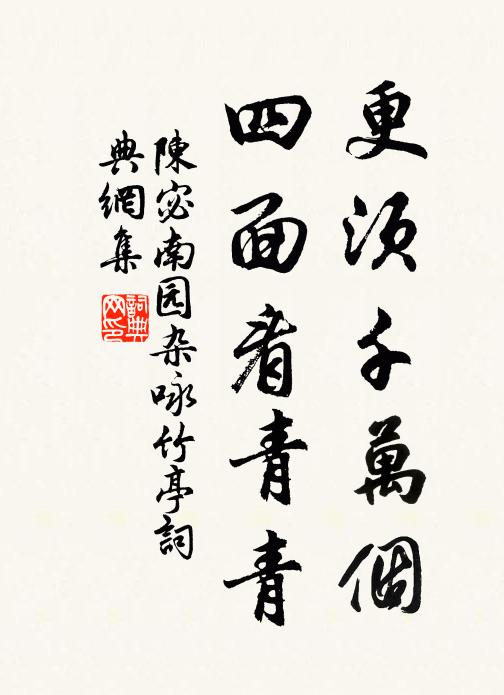 更須千萬個
四面看青青
陳宓南园杂咏竹亭詞
典網集
詞典网印